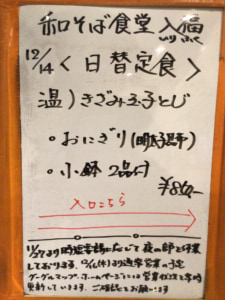 和そば食堂 入福
いりふく
12/14 〈日替定食〉
温)きざみ玉子とじ
・おにぎり(明太子昆布)
・小鉢 2品付
¥860-
入口こちら
11/27より時短営業に応じて夜の部を休業
しております。12/16(水)より通常営業の予定
グーグルマップ・ホームページには営業状況を常時
更新しています。ご確認をお願いします